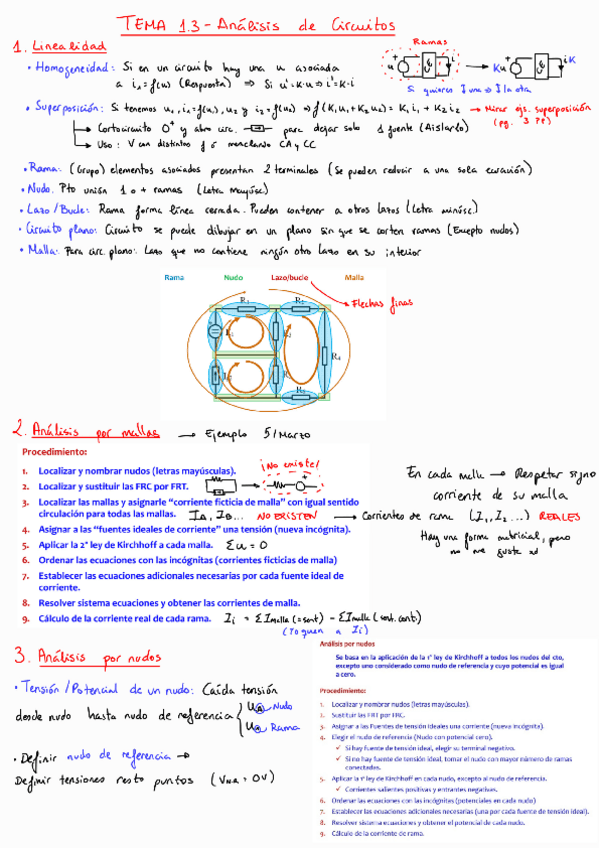 TEMA 1.3 - Análisis de Circuitos
1. Linealidad
Ramas
• Homogeneidad: Si en un circuito hay una u asociada
a i₁=f(u) (Respuesta) ⇒ Si u'=K·u ⇒ i'=K·i
Si quieres
• Superposición: Si tenemos u₁, i₁=f(u₁), u₂ y i₂=f(u₂) ⇒ f(K₁u₁+K₂u₂) = K₁i₁ + K₂i₂ → Mirar ejs. superposición
(pg. 3 PP)
Cortocircuito y abro circ. para dejar solo 1 fuente (Aislarlo)
Uso: V con distintos f ó mezclando CA y CC
• Rama: (Grupo) elementos asociados presentan 2 terminales (Se pueden reducir a una sola ecuación)
• Nudo: Pto unión 1 o + ramas (Letra mayúsc.)
• Lazo/Bucle: Rama forma línea cerrada. Pueden contener a otros lazos (Letra minúsc.)
• Circuito plano: Circuito se puede dibujar en un plano sin que se corten ramas (Excepto nudos)
• Malla: Para circ. plano: Lazo que no contiene ningún otro lazo en su interior
Rama Nudo Lazo/bucle Malla
Flechas finas
R₁ R₂
R₄
R₅
2. Análisis por mallas → Ejemplo 5/Marzo
Procedimiento:
¡No existe!
1. Localizar y nombrar nudos (letras mayúsculas).
2. Localizar y sustituir las FRC por FRT.
3. Localizar las mallas y asignarle “corriente ficticia de malla” con igual sentido
circulación para todas las mallas. I_A, I_B... NO EXISTEN → Corrientes de rama (I₁, I₂ ...) REALES
En cada malla → Respetar signo
corriente de su malla
Hay una forma matricial, pero
no me gusta xd
4. Asignar a las “fuentes ideales de corriente” una tensión (nueva incógnita).
5. Aplicar la 2ª ley de Kirchhoff a cada malla. Σu = 0
6. Ordenar las ecuaciones con las incógnitas (corrientes ficticias de malla)
7. Establecer las ecuaciones adicionales necesarias por cada fuente ideal de
corriente.
8. Resolver sistema ecuaciones y obtener las corrientes de malla.
9. Cálculo de la corriente real de cada rama. I_i = ΣI malla (= sent) − ΣI malla (sent. cont.)
(Toquen a I_i)
3. Análisis por nudos
• Tensión/Potencial de un nudo: Caída tensión
desde nudo hasta nudo de referencia
Nudo
Rama
• Definir nudo de referencia →
Definir tensiones resto puntos (V_NR = 0V)
Análisis por nudos
Se basa en la aplicación de la 1ª ley de Kirchhoff a todos los nudos del cto,
excepto uno considerado como nudo de referencia y cuyo potencial es igual
a cero.
Procedimiento:
1. Localizar y nombrar nudos (letras mayúsculas).
2. Sustituir las FRT por FRC.
3. Asignar a las Fuentes de tensión Ideales una corriente (nueva incógnita).
4. Elegir el nudo de referencia (Nudo con potencial cero).
✓ Si hay fuente de tensión ideal, elegir su terminal negativo.
✓ Si no hay fuente de tensión ideal, tomar el nudo con mayor número de ramas
conectadas.
5. Aplicar la 1ª ley de Kirchhoff en cada nudo, excepto al nudo de referencia.
✓ Corrientes salientes positivas y entrantes negativas.
6. Ordenar las ecuaciones con las incógnitas (potenciales en cada nudo)
7. Establecer las ecuaciones adicionales necesarias (una por cada fuente de tensión ideal).
8. Resolver sistema ecuaciones y obtener el potencial de cada nudo.
9. Cálculo de la corriente de rama.